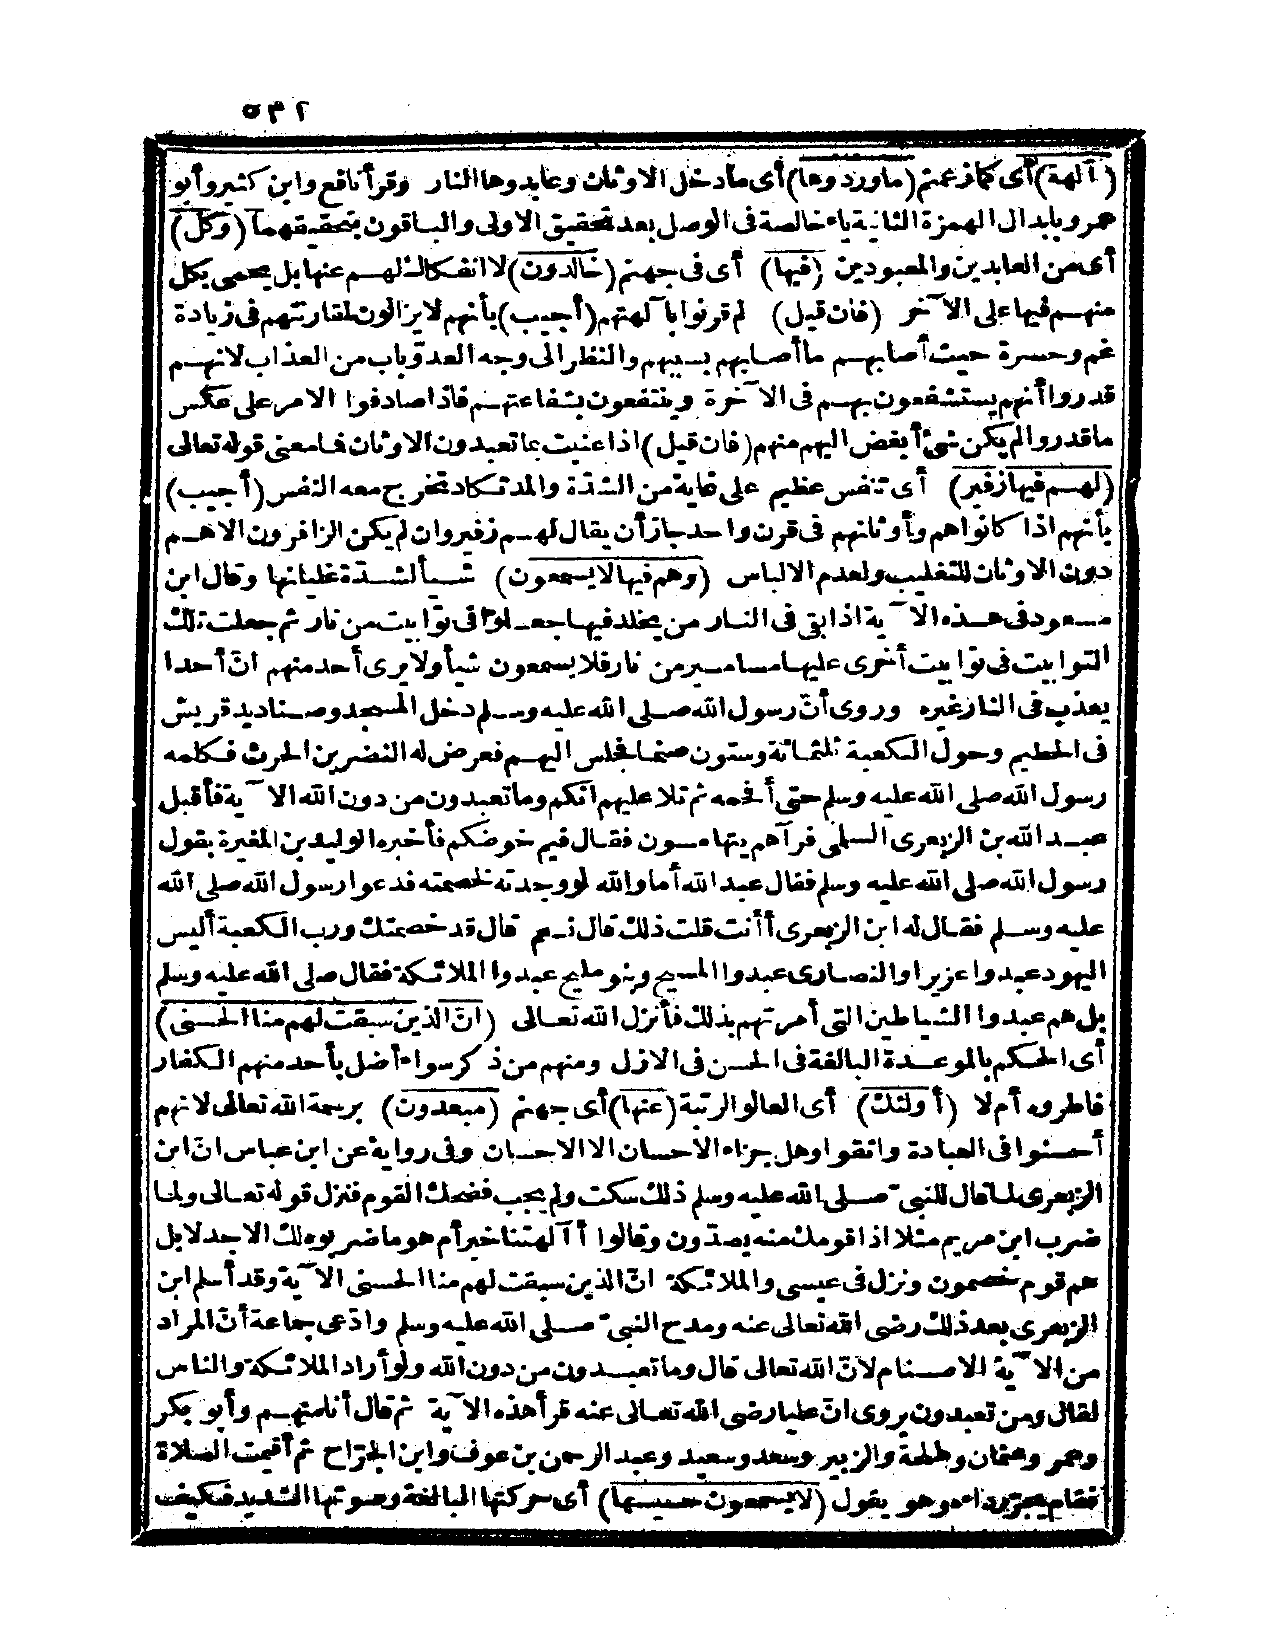 ٥٣٢
(آلهة) أى كما زعمتم (ماوردوها) أى مادخل الاوثان وعابدوها النار وقرأ نافع وابن كثير وأبو
عمرو بابدال الهمزة الثانية ياء خالصة فى الوصل بعد تحقيق الاولى والباقون بتحقيقهما (وكل)
أى من العابدين والمعبودين (فيها) أى فى جهنم (خالدون) لا انفكاك لهم عنها بل يحمى بكل
منهم فيها على الآخر (فان قيل) لم قرنوا بآلهتهم (أجيب) بأنهم لا يزالون لمقارنتهم فى زيادة
غم وحسرة حيث أصابهم ما أصابهم بسببهم والنظر الى وجه العدوّ باب من العذاب لانهم
قدروا أنهم يستشفعون بهم فى الآخرة وينتفعون بشفاعتهم فاذا صادفوا الامر على عكس
ما قدروا لم يكن شئ أبغض اليهم منهم (فان قيل) اذا عنيت بما تعبدون الاوثان فما معنى قوله تعالى
(لهم فيها زفير) أى تنفس عظيم على غاية من الشدّة والمد تكاد تخرج معه النفس (أجيب)
بأنهم اذا كانوا هم وأوثانهم فى قرن واحد جاز أن يقال لهم زفير وان لم يكن الزافرون الا هم
دون الاوثان للتغليب ولعدم الالباس (وهم فيها لا يسمعون) شيأ لشدّة غليانها وقال ابن
مسعود فى هذه الآية اذا بقى فى النار من يخلد فيها جعلوا فى توابيت من نار ثم جعلت تلك
التوابيت فى توابيت أخرى عليها مسامير من نار فلا يسمعون شيأ ولا يرى أحد منهم انّ أحدا
يعذب فى النار غيره وروى أنّ رسول الله صلى الله عليه وسلم دخل المسجد وصناديد قريش
فى الحطيم وحول الكعبة ثلثمائة وستون صنما فجلس اليهم فعرض له النضر بن الحرث فكلمه
رسول الله صلى الله عليه وسلم حتى أفحمه ثم تلا عليهم انكم وما تعبدون من دون الله الآية فأقبل
عبد الله بن الزبعرى السلمى فرآهم يتهامسون فقال فيم خوضكم فأخبره الوليد بن المغيرة بقول
رسول الله صلى الله عليه وسلم فقال عبد الله أما والله لو وجدته لخصمته فدعوا رسول الله صلى الله
عليه وسلم فقال له ابن الزبعرى أأنت قلت ذلك قال نعم قال قد خصمتك ورب الكعبة أليس
اليهود عبدوا عزيرا والنصارى عبدوا المسيح وبنو مليح عبدوا الملائكة فقال صلى الله عليه وسلم
بل هم عبدوا الشياطين التى أمرتهم بذلك فأنزل الله تعالى (انّ الذين سبقت لهم منا الحسنى)
أى الحكم بالموعدة البالغة فى الحسن فى الازل ومنهم من ذكر سواء أضل بأحد منهم الكفار
فاطروه أم لا (أولئك) أى العالو الرتبة (عنها) أى جهنم (مبعدون) برحمة الله تعالى لانهم
أحسنوا فى العبادة واتقوا وهل جزاء الاحسان الا الاحسان وفى رواية عن ابن عباس انّ ابن
الزبعرى لما قال للنبىّ صلى الله عليه وسلم ذلك سكت ولم يجب فضحك القوم فنزل قوله تعالى ولما
ضرب ابن مريم مثلا اذا قومك منه يصدّون وقالوا أآلهتنا خير أم هو ما ضربوه لك الا جدلا بل
هم قوم خصمون ونزل فى عيسى والملائكة انّ الذين سبقت لهم منا الحسنى الآية وقد أسلم ابن
الزبعرى بعد ذلك رضى الله تعالى عنه ومدح النبىّ صلى الله عليه وسلم وادّعى جماعة أنّ المراد
من الآية الاصنام لانّ الله تعالى قال وما تعبدون من دون الله ولو أراد الملائكة والناس
لقال ومن تعبدون يروى انّ عليا رضى الله تعالى عنه قرأ هذه الآية ثم قال أنا منهم وأبو بكر
وعمر وعثمان وطلحة والزبير وسعد وسعيد وعبد الرحمن بن عوف وابن الجرّاح ثم أقيمت الصلاة
فقام يجرّ رداءه وهو يقول (لا يسمعون حسيسها) أى حركتها البالغة وصوتها الشديد فكيف